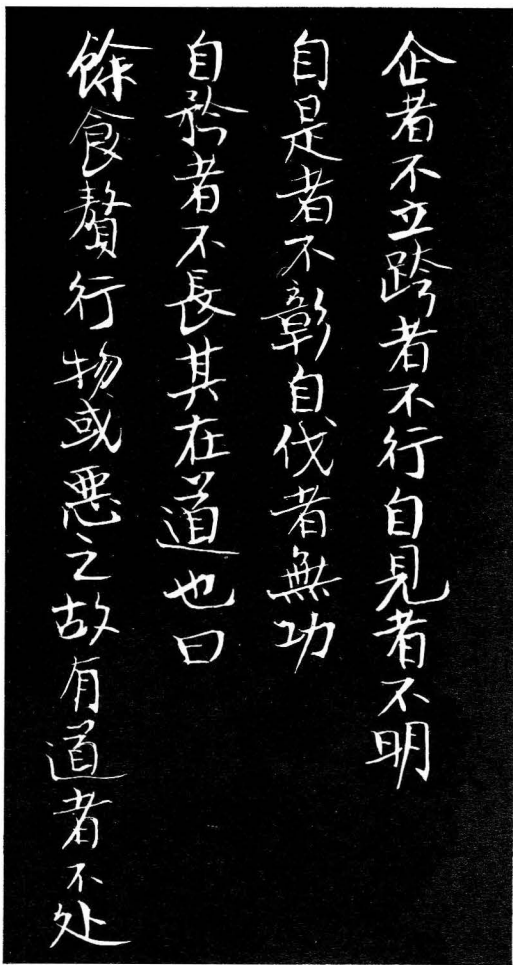 企者不立跨者不行自見者不明
自是者不彰自伐者無功
自矜者不長其在道也曰
餘食贅行物或悪之故有道者不处